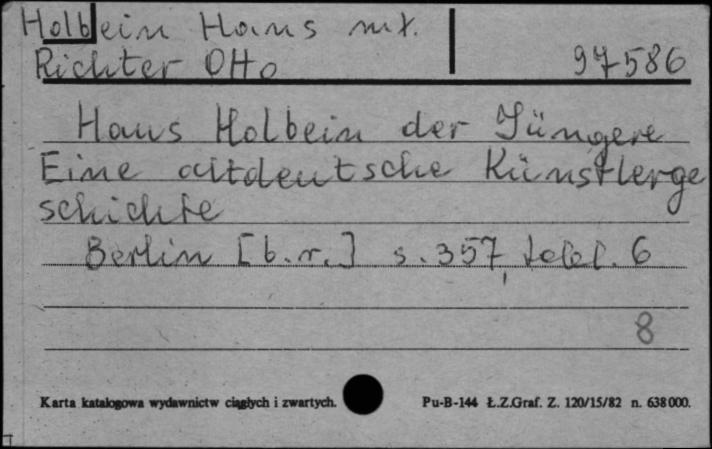 Holbein Hans mł.
Richter Otto 97586
Hans Holbein der Jüngere
Eine altdeutsche Künstlerge
schichte
Berlin [b.r.] s. 357, tabl. 6
8
Karta katalogowa wydawnictw ciągłych i zwartych. Pu-B-144 Ł.Z.Graf. Z. 120/15/82 n. 638000.